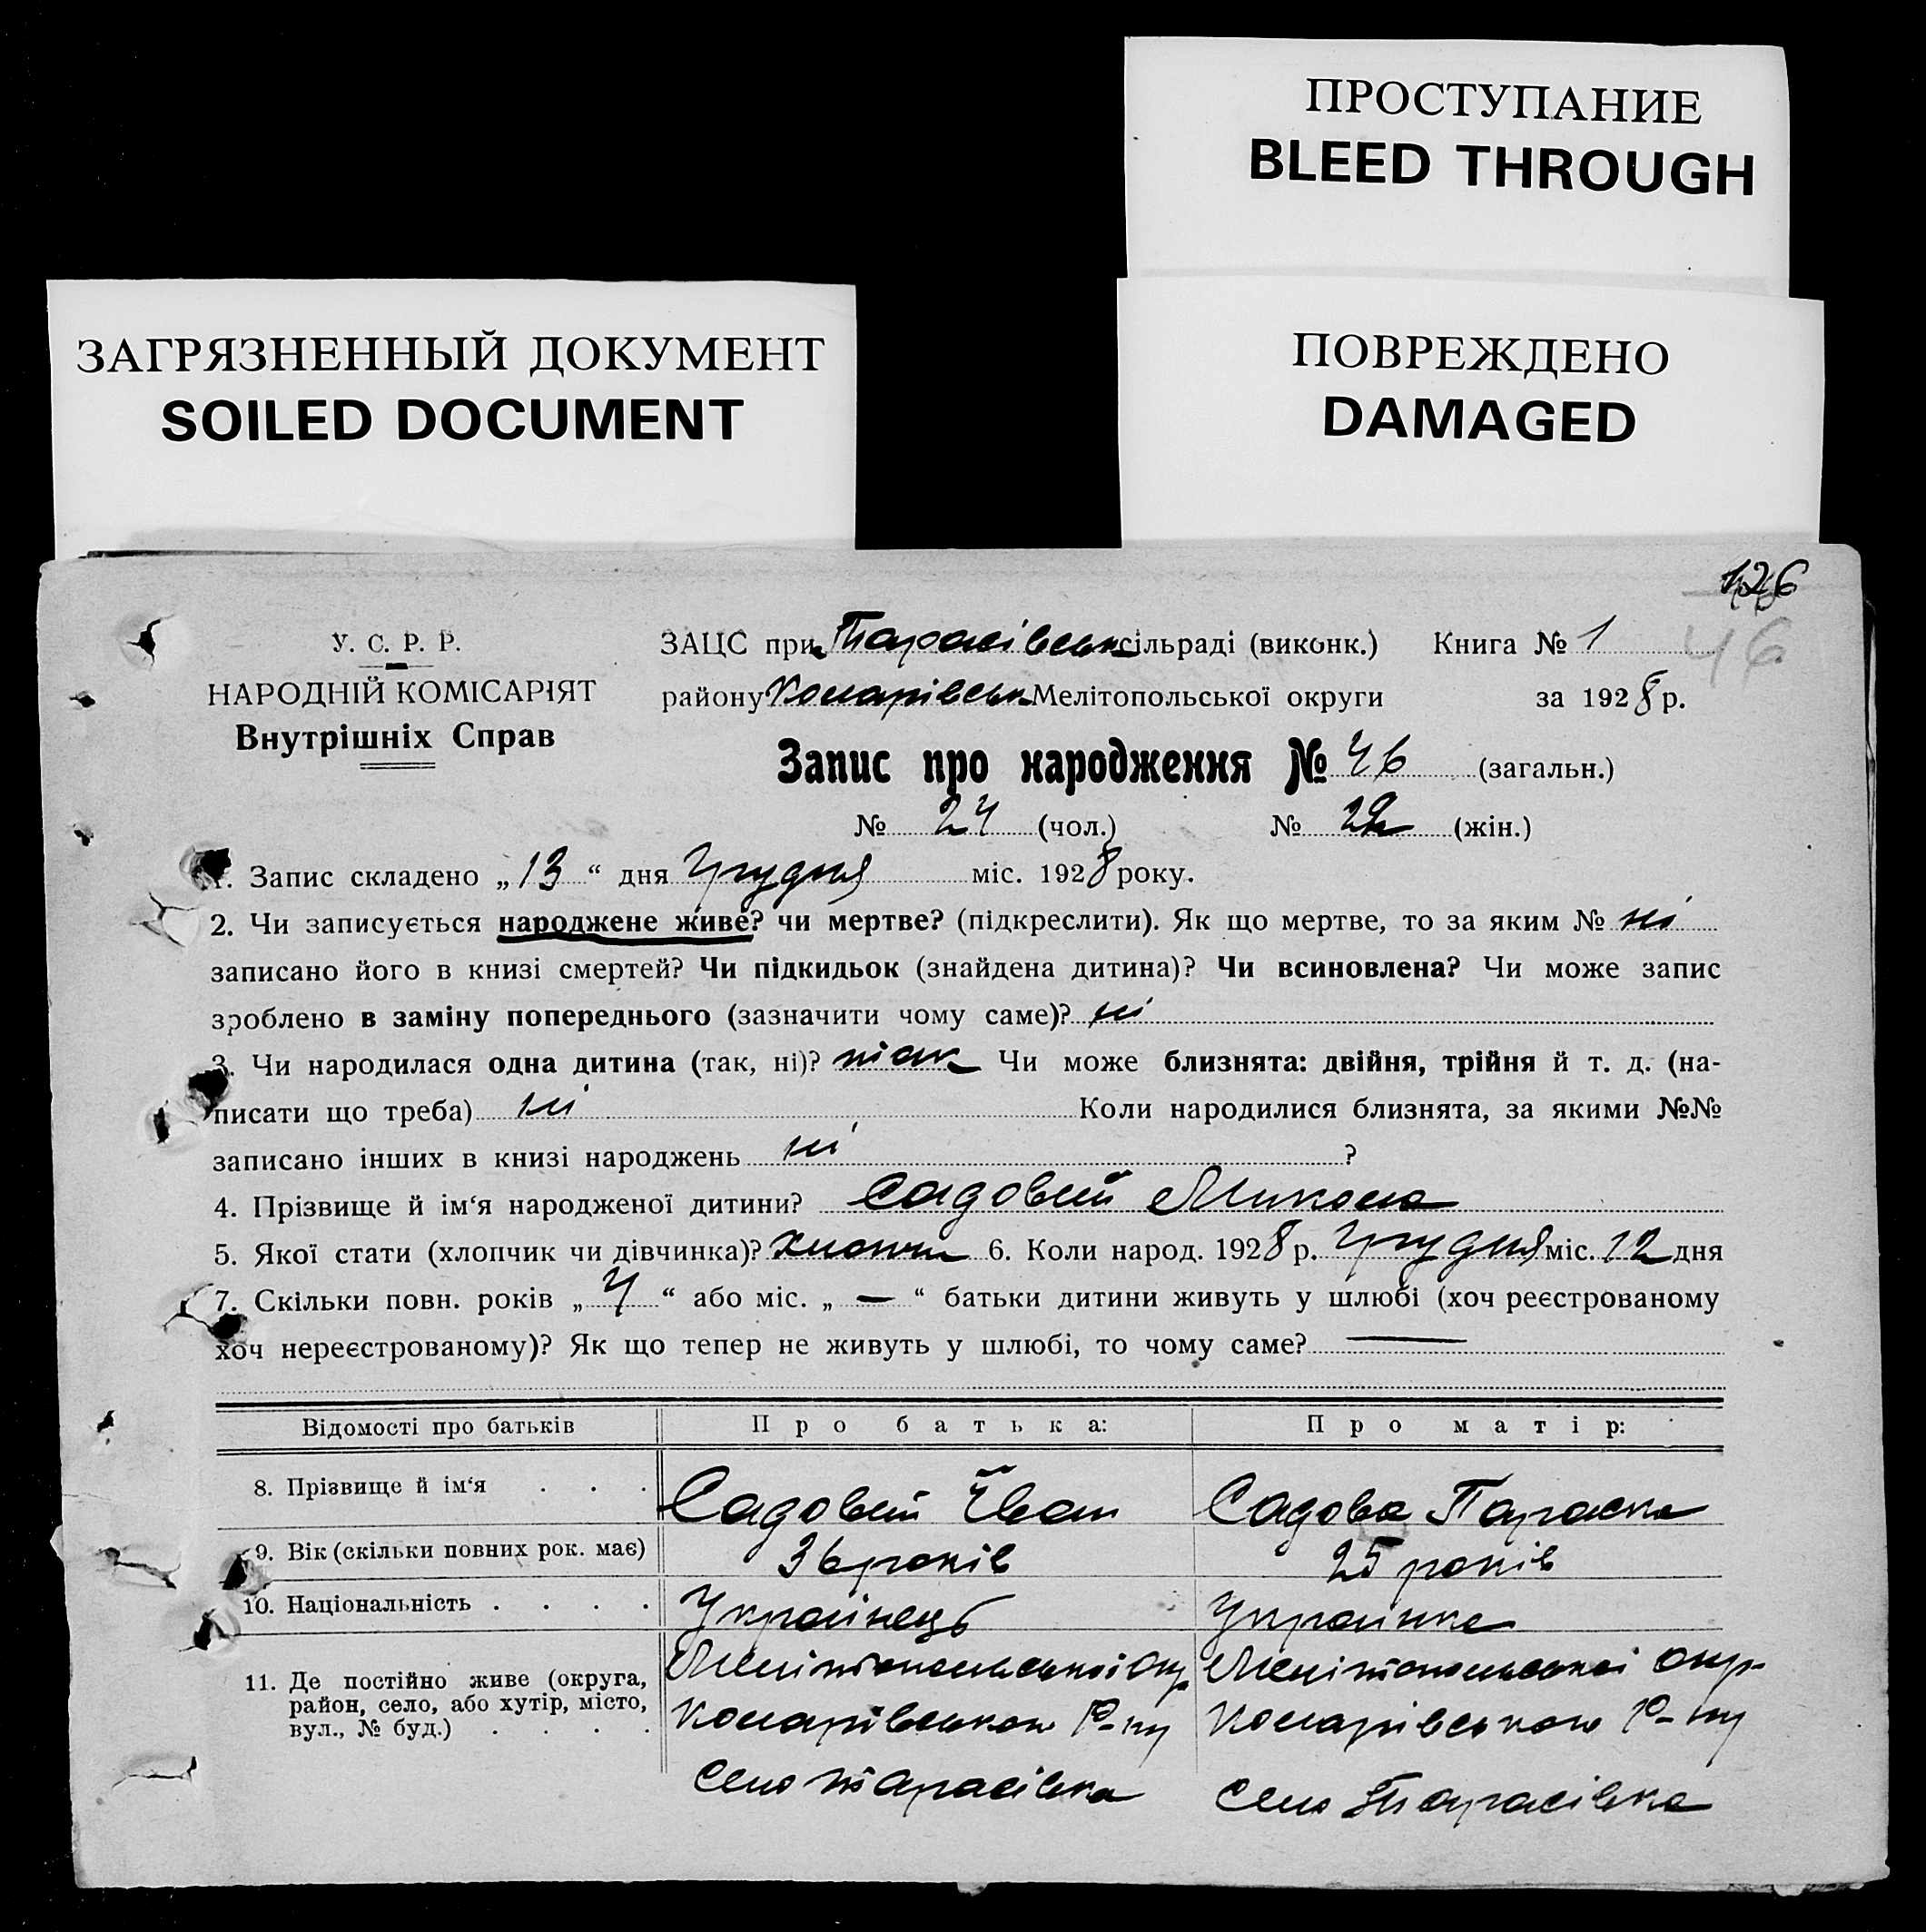 ПРОСТУПАНИЕ
BLEED THROUGH
ЗАГРЯЗНЕННЫЙ ДОКУМЕНТ
SOILED DOCUMENT
ПОВРЕЖДЕНО
DAMAGED
126
46
У. С. Р. Р.
НАРОДНІЙ КОМІСАРІЯТ
Внутрішніх Справ
ЗАЦС при Тарасівськ сільраді (виконк.) Книга № 1
району Комарівськ Мелітопольської округи за 1928 р.
Запис про народження № 46 (загальн.)
№ 24 (чол.) № 22 (жін.)
1. Запис складено „13“ дня Грудня міс. 1928 року.
2. Чи записується народжене живе? чи мертве? (підкреслити). Як що мертве, то за яким № ні
записано його в книзі смертей? Чи підкидьок (знайдена дитина)? Чи всиновлена? Чи може запис
зроблено в заміну попереднього (зазначити чому саме)? ні
3. Чи народилася одна дитина (так, ні)? так Чи може близнята: двійня, трійня й т. д. (на-
писати що треба) ні Коли народилися близнята, за якими №№
записано інших в книзі народжень ні ?
4. Прізвище й ім‘я народженої дитини? Садовий Микола
5. Якої стати (хлопчик чи дівчинка)? хлопчи 6. Коли народ. 1928 р. Грудня міс. 12 дня
7. Скільки повн. років „4“ або міс. „—“ батьки дитини живуть у шлюбі (хоч реєстрованому
хоч нереєстрованому)? Як що тепер не живуть у шлюбі, то чому саме? —
Відомості про батьків Про батька: Про матір:
8. Прізвище й ім‘я . . . Садовий Йван Садова Параска
9. Вік (скільки повних рок. має) 36 років 25 років
10. Національність . . . . Українець Украинка
11. Де постійно живе (округа, район, село, або хутір, місто, вул., № буд.) . . . .
Мелітопольської окр Мелітопольської окр.
Комарівського Р-ну Комарівського Р-ну
Село Тарасівка Село Тарасівка